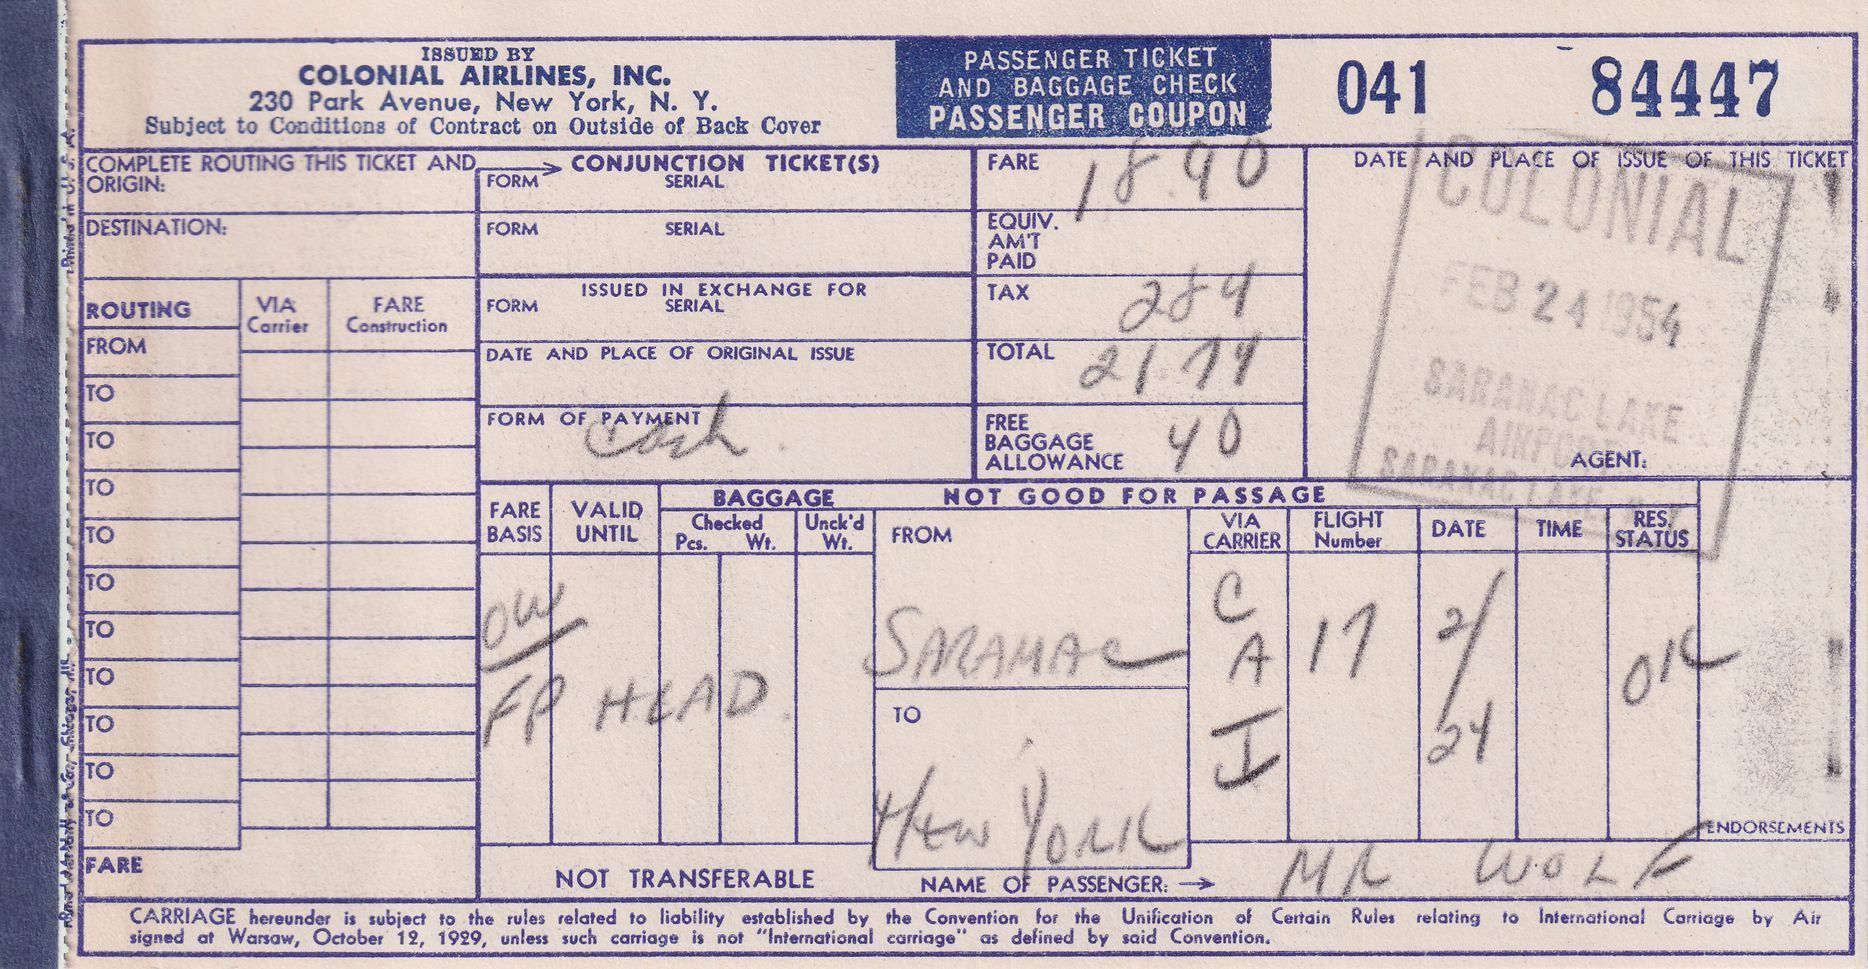 ISSUED BY
COLONIAL AIRLINES, INC.
230 Park Avenue, New York, N. Y.
Subject to Conditions of Contract on Outside of Back Cover
PASSENGER TICKET
AND BAGGAGE CHECK
PASSENGER COUPON
041 84447
COMPLETE ROUTING THIS TICKET AND
ORIGIN:
DESTINATION:
CONJUNCTION TICKET(S)
FORM SERIAL
FORM SERIAL
ISSUED IN EXCHANGE FOR
FORM SERIAL
DATE AND PLACE OF ORIGINAL ISSUE
FORM OF PAYMENT
Cash
FARE 18.90
EQUIV.
AM'T
PAID
TAX 284
TOTAL 21.74
FREE
BAGGAGE
ALLOWANCE
40
DATE AND PLACE OF ISSUE OF THIS TICKET
COLONIAL
FEB 24 1954
SARANAC LAKE
AIRPORT
SARANAC LAKE
AGENT:
ROUTING
VIA
Carrier
FARE
Construction
FROM
TO
TO
TO
TO
TO
TO
TO
TO
TO
TO
FARE
FARE
BASIS
VALID
UNTIL
BAGGAGE
Checked
Pcs. Wt.
Unck'd
Wt.
NOT GOOD FOR PASSAGE
FROM
VIA
CARRIER
FLIGHT
Number
DATE
TIME
RES.
STATUS
OW
FP HEAD.
SARANAC
TO
New York
C
A
I
17
2/
24
OK
ENDORSEMENTS
NOT TRANSFERABLE
NAME OF PASSENGER: →
MR WOLF
CARRIAGE hereunder is subject to the rules related to liability established by the Convention for the Unification of Certain Rules relating to International Carriage by Air
signed at Warsaw, October 12, 1929, unless such carriage is not "International carriage" as defined by said Convention.
Printed in U. S. A.